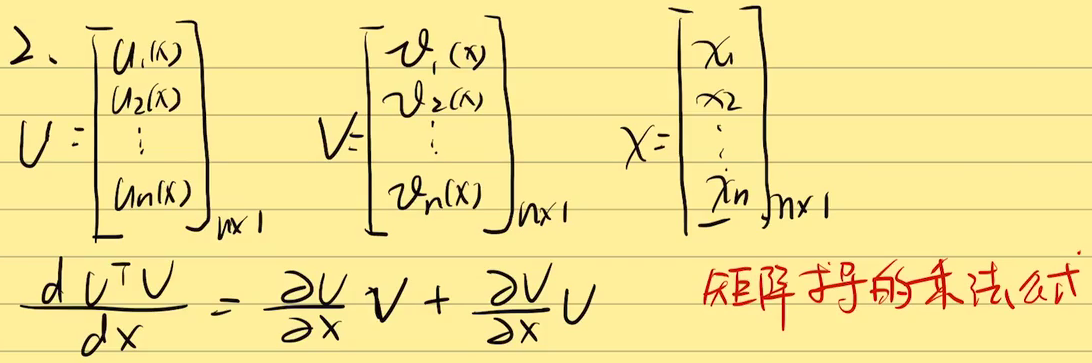 2、 U = [u₁(x) u₂(x) ⋮ uₙ(x)]ₙₓ₁ V = [v₁(x) v₂(x) ⋮ vₙ(x)]ₙₓ₁ X = [x₁ x₂ ⋮ xₙ]ₙₓ₁
d UᵀV / dx = ∂U/∂x V + ∂V/∂x U 矩阵求导的乘法公式